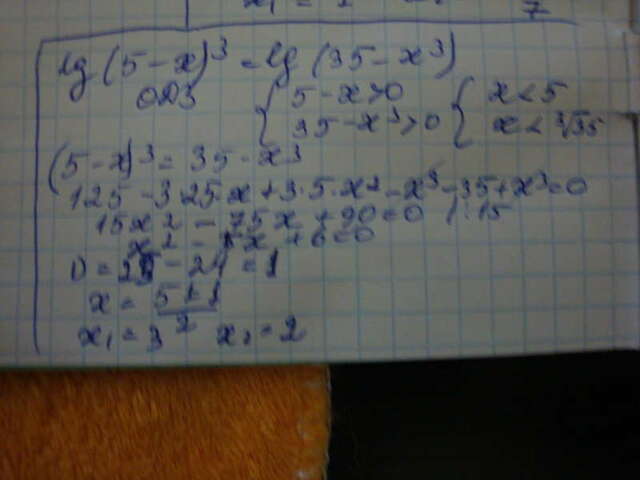 x₁ = 1
7
lg (5 - x)³ = lg (35 - x³)
ОДЗ { 5 - x > 0 { x < 5
35 - x³ > 0 x < ∛35
(5 - x)³ = 35 - x³
125 - 3·25·x + 3·5·x² - x³ - 35 + x³ = 0
15x² - 75x + 90 = 0 / : 15
x² - 5x + 6 = 0
D = 25 - 24 = 1
x = (5 ± 1) / 2
x₁ = 3 x₂ = 2